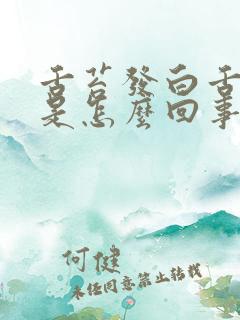 舌苔發白舌
是怎麼回事
何健
未经同意禁止转载